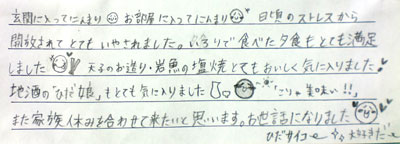 玄関に入ってにんまり お部屋に入ってにんまり 日頃のストレスから
開放されてとてもいやされました。いろりで食べた夕食もとても満足
しました 天子のお造り・岩魚の塩焼とてもおいしく気に入りました
地酒の"ひだ娘"もとても気に入りました 「こりゃ美味い!!」
また家族休みを合わせて来たいと思います。お世話になりました
ひだサイコー 大好きだー